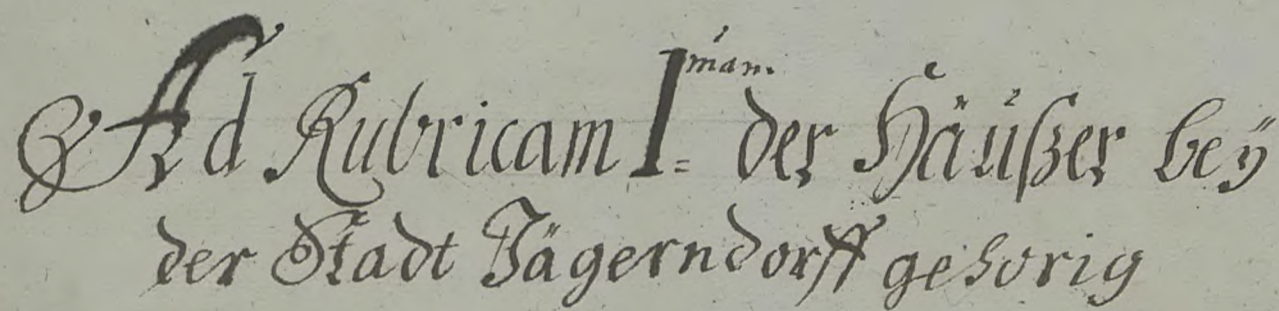 Ad Rubricam I.mam. der Häußer beÿ
der Stadt Jägerndorff gehorig